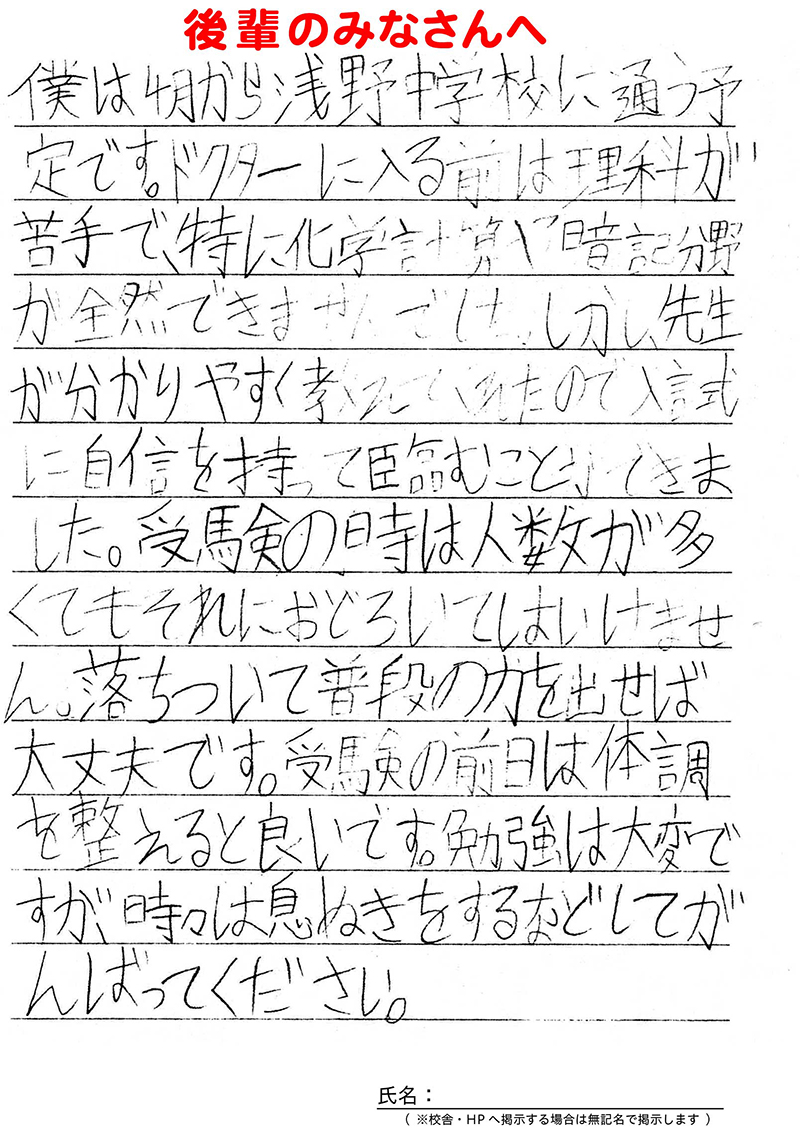 後輩のみなさんへ
僕は4月から浅野中学校に通う予
定です。ドクターに入る前は理科が
苦手で、特に化学計算や暗記分野
が全然できませんでした。しかし、先生
が分かりやすく教えてくれたので入試
に自信を持って臨むことができま
した。受験の時は人数が多
くてもそれにおどろいてはいけませ
ん。落ちついて普段の力を出せば
大丈夫です。受験の前日は体調
を整えると良いです。勉強は大変で
すが、時々は息ぬきをするなどしてが
んばってください。
氏名：
（ ※校舎・HPへ掲示する場合は無記名で掲示します ）